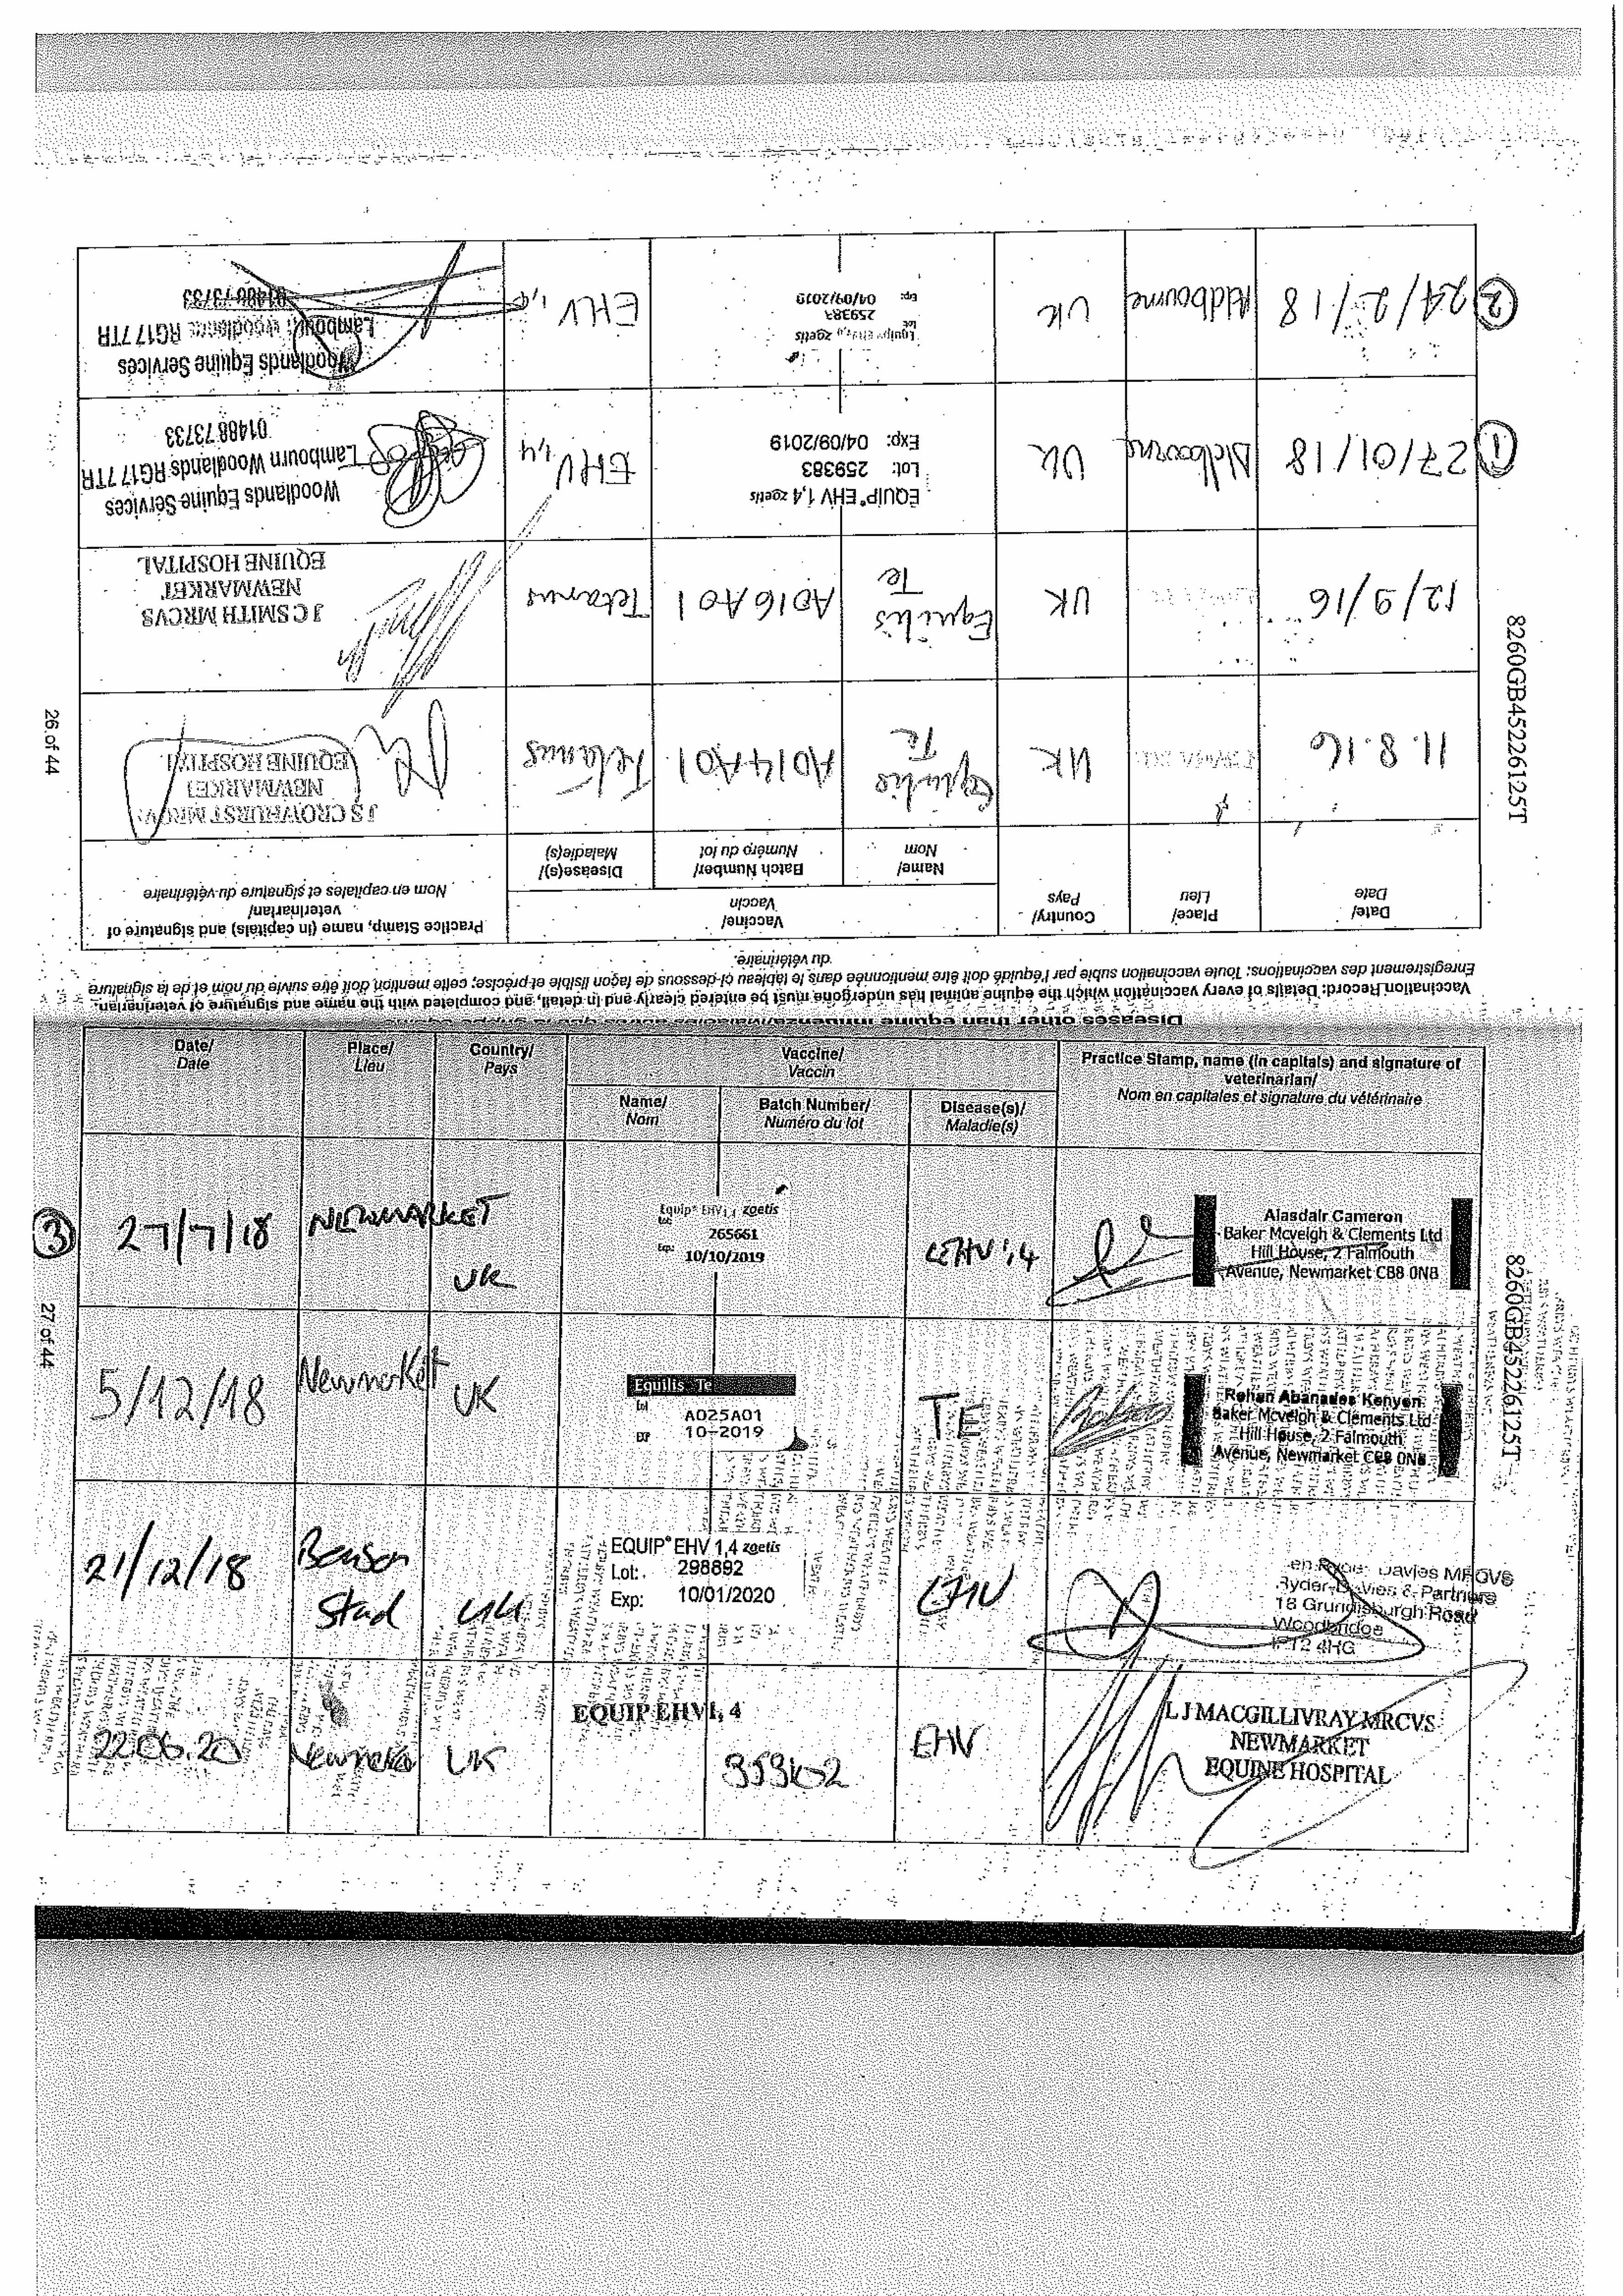 Diseases other than equine influenza
Vaccination Record: Details of every vaccination which the equine animal has undergone must be entered clearly and in detail, and completed with the name and signature of veterinarian.
Enregistrement des vaccinations: Toute vaccination subie par l'équidé doit être mentionnée dans le tableau ci-dessous de façon lisible et précise; cette mention doit être suivie du nom et de la signature
du vétérinaire.
Date/
Date
Place/
Lieu
Country/
Pays
Vaccine/
Vaccin
Name/
Nom
Batch Number/
Numéro du lot
Disease(s)/
Maladie(s)
Practice Stamp, name (in capitals) and signature of
veterinarian/
Nom en capitales et signature du vétérinaire
11.8.16
UK
Equilis
Te
A014A01
Tetanus
J S CROWHURST MRCVS
NEWMARKET
EQUINE HOSPITAL
12/9/16
UK
Equilis
Te
A016A01
Tetanus
J C SMITH MRCVS
NEWMARKET
EQUINE HOSPITAL
①
27/01/18
UK
EQUIP® EHV 1,4 zoetis
Lot: 259383
Exp: 04/09/2019
EHV 1,4
Woodlands Equine Services
Lambourn Woodlands RG17 7TR
01488 73733
②
24/2/18
Aldbourne
UK
Equip® EHV 1,4 zoetis
Lot:
Exp: 04/09/2019
EHV 1,4
Woodlands Equine Services
Lambourn Woodlands RG17 7TR
01488 73733
8260GB45226125T
26 of 44
Date/
Date
Place/
Lieu
Country/
Pays
Vaccine/
Vaccin
Name/
Nom
Batch Number/
Numéro du lot
Disease(s)/
Maladie(s)
Practice Stamp, name (in capitals) and signature of
veterinarian/
Nom en capitales et signature du vétérinaire
③
27/7/18
NEWMARKET
UK
Equip® EHV 1,4 zoetis
Lot:
265661
Exp:
10/10/2019
EHV 1,4
Alasdair Cameron
Baker Mcveigh & Clements Ltd
Hill House, 2 Falmouth
Avenue, Newmarket CB8 0NB
5/12/18
Newmarket
UK
Equilis Te
Lot
A025A01
EXP
10-2019
TE
Rohan Abanades Kenyon
Baker Mcveigh & Clements Ltd
Hill House, 2 Falmouth
Avenue, Newmarket CB8 0NB
21/12/18
Stud
UK
EQUIP® EHV 1,4 zoetis
Lot: 298892
Exp: 10/01/2020
EHV
Davies MRCVS
Ryder-Davies & Partners
18 Grundisburgh Road
Woodbridge
IP12 4HG
22.06.20
UK
EQUIP EHV1, 4
EHV
L J MACGILLIVRAY MRCVS
NEWMARKET
EQUINE HOSPITAL
8260GB45226125T
27 of 44